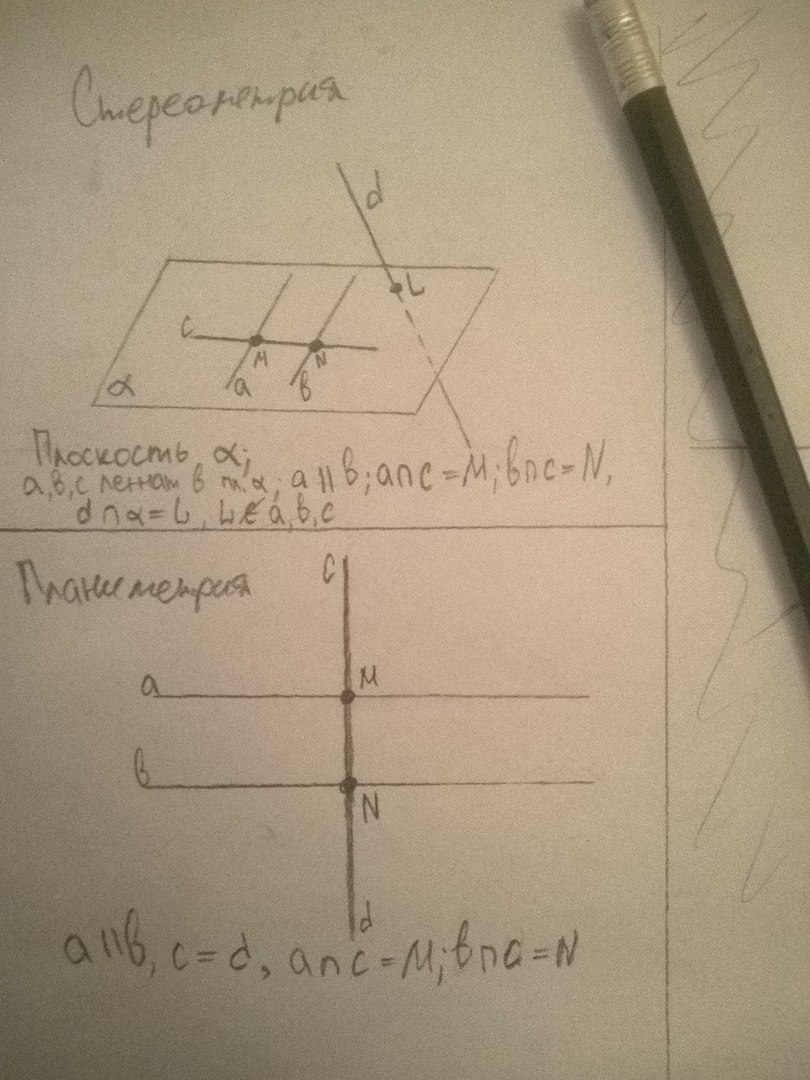 Стереометрия
d
L
c
M
N
α
a
в
Плоскость α;
a,в,c лежат в пл.α; a || в; a∩c = M; в∩c = N,
d∩α = L, L∉a,в,c
Планиметрия
c
a
M
в
N
d
a||в, c = d, a∩c = M; в∩a = N